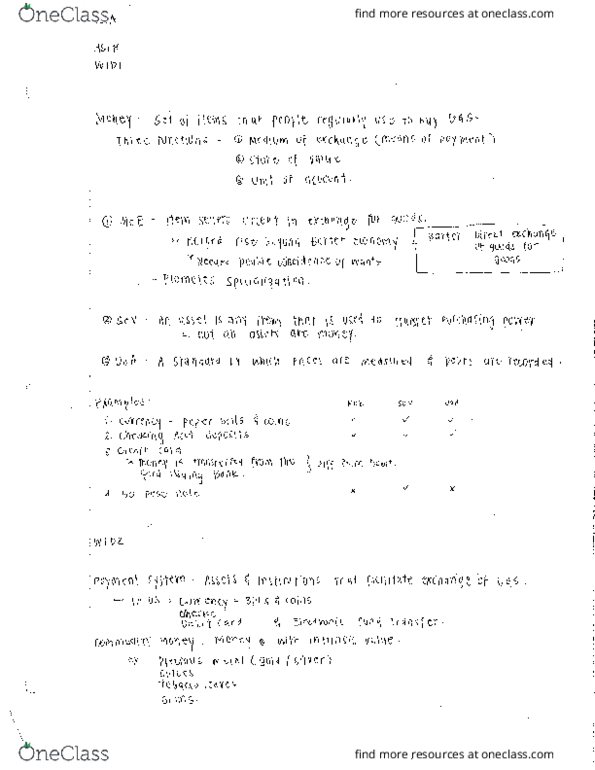 OneClass
find more resources at oneclass.com
W1D1
Money - Set of items that people regularly use to buy G&S.
Three functions - ① Medium of exchange (means of payment)
② Store of value
③ Unit of account.
① MoE - item sellers accept in exchange for goods.
barter economy
Barter Direct exchange
of goods for
goods
double coincidence of wants
- Promotes Specialization.
② SoV - An asset is any item that is used to transfer purchasing power
not all assets are money.
③ UoA - A standard in which prices are measured & are recorded.
Examples: MoE SoV UoA
1. Currency - paper bills & coins ✓ ✓ ✓
2. Checking acct deposits ✓ ✓ ✓
3 Credit card
Money is transferred from the
bank.
4 50 peso note x ✓ x
W1D2
Payment System - Assets & Institutions that facilitate exchange of G&S.
Currency - Bills & coins
Checks
Card & Electronic fund transfer.
Commodity Money - Money with intrinsic value.
ex Precious metal (gold/silver)
Tobacco leaves
OneClass
find more resources at oneclass.com